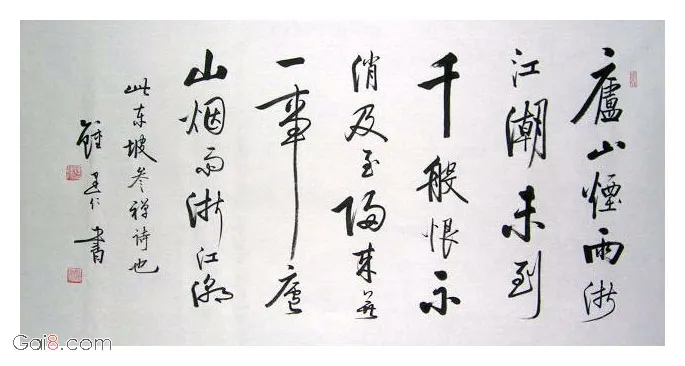 廬山煙雨浙
江潮未到
千般恨不
消及至歸来無
一事廬
山烟雨浙江潮
此东坡参禅诗也
仁書
Gai8.com